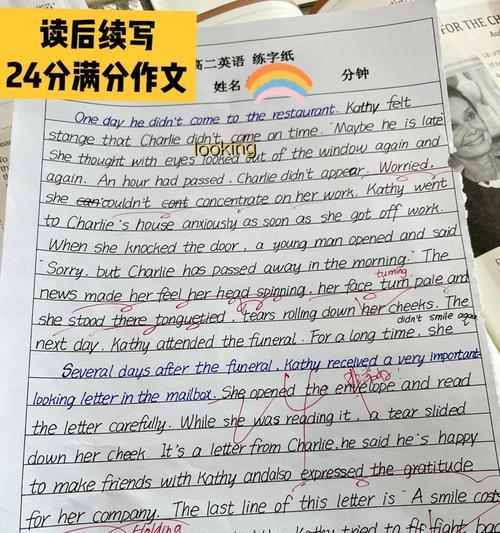 读后续写
24分满分作文
高二英语 练字纸
姓名
分钟
FOR THE
One day he didn't come to the restaurant. Kathy felt
stange that Charlie didn't come on time. "Maybe he is late
looking
She thought with eyes looked out of the window again and
again. An hour had passed. Charlie didn't appear. Worried,
she can couldn't cont concentrate on her work. Kathy went
to Charlie's house anxiously as soon as she got off work.
When she knocked the door, a young man opened and said
"Sorry, but Charlie has passed away in the morning." The
turning
news made her feel her head spinning, her face turn pale and
she stood there tonguetied, tears rolling down her cheeks. The
didn't smile again
next day, Kathy attended the funeral. For a long time, she
Several days after the funeral, Kathy received a very important-
looking letter in the mailbox. She opened the envelope and read
the letter carefully. While she was reading it, a tear slided
down her cheek. It's a letter from Charlie, he said he's happy
to make friends with Kathy andalso expressed the gratitude
for her company. The last line of this letter is "A smile costs
Holding
Kathy tried to fight back